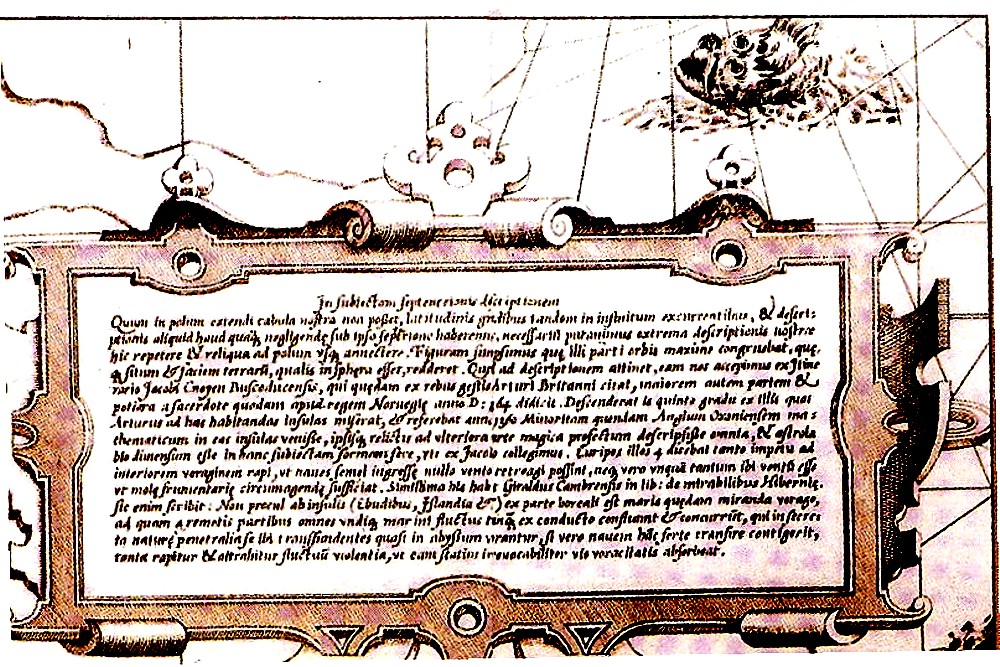 In subiectam septentrionis descriptionem
Quum in polum extendi tabula nostra non posset, latitudinis gradibus tandem in infinitum excurrentibus, & descri-
ptionis aliquid haud quaq̃ negligendę sub ipso septẽtrione haberemus, necessariũ putavimus extrema descriptionis nostræ
hic repetere & reliqua ad polum usq̃ annectere. Figuram sumpsimus quę illi parti orbis maxime congruebat, quę-
q̃ situm & faciem terrarũ, qualis in sphęra esset, redderet. Quod ad descriptionem attinet, eam nos accepimus ex Itine
rario Jacobi Cnoyen Buscoducensis, qui quędam ex rebus gestis Arturi Britanni citat, maiorem autem partem &
potiora a sacerdote quodam apud regem Norvegię anno D: 1364 didicit. Descenderat is quinto gradu ex illis quos
Arturus ad has habitandas insulas miserat, & referebat anno 1360 Minoritam quendam Anglum Oxoniensem ma-
thematicum in eas insulas venisse, ipsisq̃ relictis ad ulteriora arte magica profectum descripsisse omnia, & astrola
bio dimensum esse in hanc subiectam formam fere, uti ex Jacobo collegimus. Euripos illos 4 dicebat tanto impetu ad
interiorem voraginem rapi, ut naves semel ingressę nullo vento retroagi possint, neq̃ vero unquã tantum ibi ventũ esse
ut molę frumentarię circumagendę sufficiat. Simillima his habet Giraldus Cambrensis in lib: de mirabilibus Hibernię.
sic enim scribit: Non procul ab insulis (Ebudibus, Islandia &c̃.) ex parte boreali est maris quędam miranda vorago,
ad quam a remotis partibus omnes undiq̃ marini fluctus tanq̃ ex conducto confluunt & concurrũt, qui in secre-
ta naturę penetralia se ibi transfundentes quasi in abyssum vorantur, si vero navem hãc forte transire contigerit,
tanta rapitur & attrahitur fluctuũ violentia, ut eam statim irrevocabiliter vis voracitatis absorbeat.